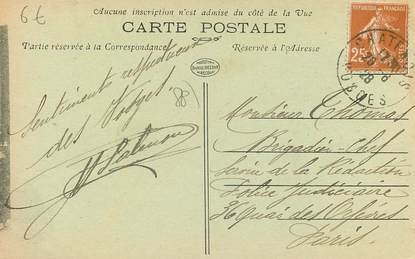 6€
Aucune inscription n'est admise du côté de la Vue
CARTE POSTALE
Partie réservée à la Correspondance
Réservée à l'Adresse
25
VOSGES
Sentiments respectueux
des Vosges.
Monsieur Thomas
Brigadier-Chef
Service de la Rédaction
Police Judiciaire
36 Quai des Orfèvres
Paris.